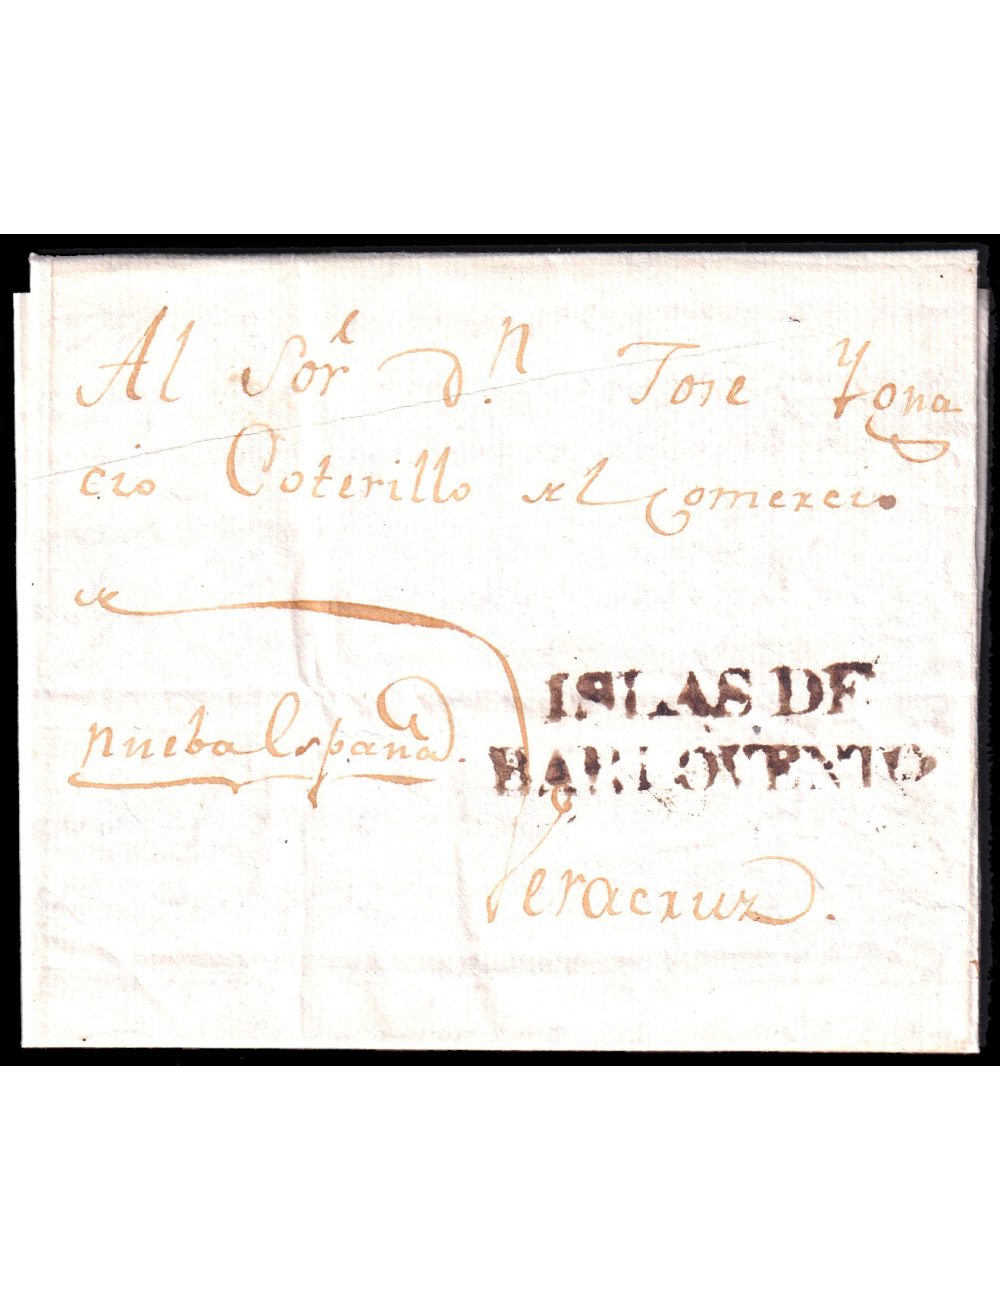 Al Sor. Dn. Jose Ygna
cio Coterillo del Comercio
de
nueba España.
ISLAS DE
BARLOVENTO
Veracruz.